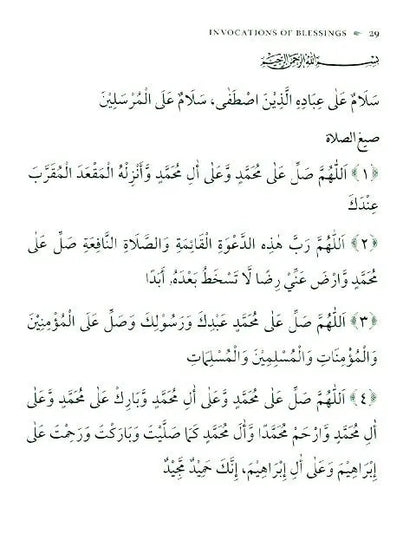 INVOCATIONS OF BLESSINGS 29
بِسْمِ اللهِ الرَّحْمٰنِ الرَّحِيْمِ
سَلَامٌ عَلٰى عِبَادِهِ الَّذِيْنَ اصْطَفٰى، سَلَامٌ عَلَى الْمُرْسَلِيْنَ
صيغ الصلاة
﴿١﴾ اَللّٰهُمَّ صَلِّ عَلٰى مُحَمَّدٍ وَّعَلٰى اٰلِ مُحَمَّدٍ وَّأَنْزِلْهُ الْمَقْعَدَ الْمُقَرَّبَ
عِنْدَكَ
﴿٢﴾ اَللّٰهُمَّ رَبَّ هٰذِهِ الدَّعْوَةِ الْقَائِمَةِ وَالصَّلَاةِ النَّافِعَةِ صَلِّ عَلٰى
مُحَمَّدٍ وَّارْضَ عَنِّيْ رِضًا لَّا تَسْخَطُ بَعْدَهُ، أَبَدًا
﴿٣﴾ اَللّٰهُمَّ صَلِّ عَلٰى مُحَمَّدٍ عَبْدِكَ وَرَسُوْلِكَ وَصَلِّ عَلَى الْمُؤْمِنِيْنَ
وَالْمُؤْمِنَاتِ وَالْمُسْلِمِيْنَ وَالْمُسْلِمَاتِ
﴿٤﴾ اَللّٰهُمَّ صَلِّ عَلٰى مُحَمَّدٍ وَّعَلٰى اٰلِ مُحَمَّدٍ وَّبَارِكْ عَلٰى مُحَمَّدٍ وَّعَلٰى
اٰلِ مُحَمَّدٍ وَّارْحَمْ مُحَمَّدًا وَّاٰلَ مُحَمَّدٍ كَمَا صَلَّيْتَ وَبَارَكْتَ وَرَحِمْتَ عَلٰى
إِبْرَاهِيْمَ وَعَلٰى اٰلِ إِبْرَاهِيْمَ، إِنَّكَ حَمِيْدٌ مَّجِيْدٌ